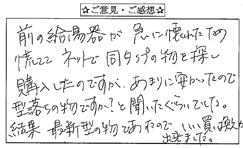 ☆ご意見・ご感想☆
前の給湯器が急に壊れたため
慌ててネットで同タイプの物を探し
購入したのですが、あまりに安かったので
型落ちの物ですか?と聞いたくらいでした。
結果 最新型の物であったので いい買い換えが
出来ました。